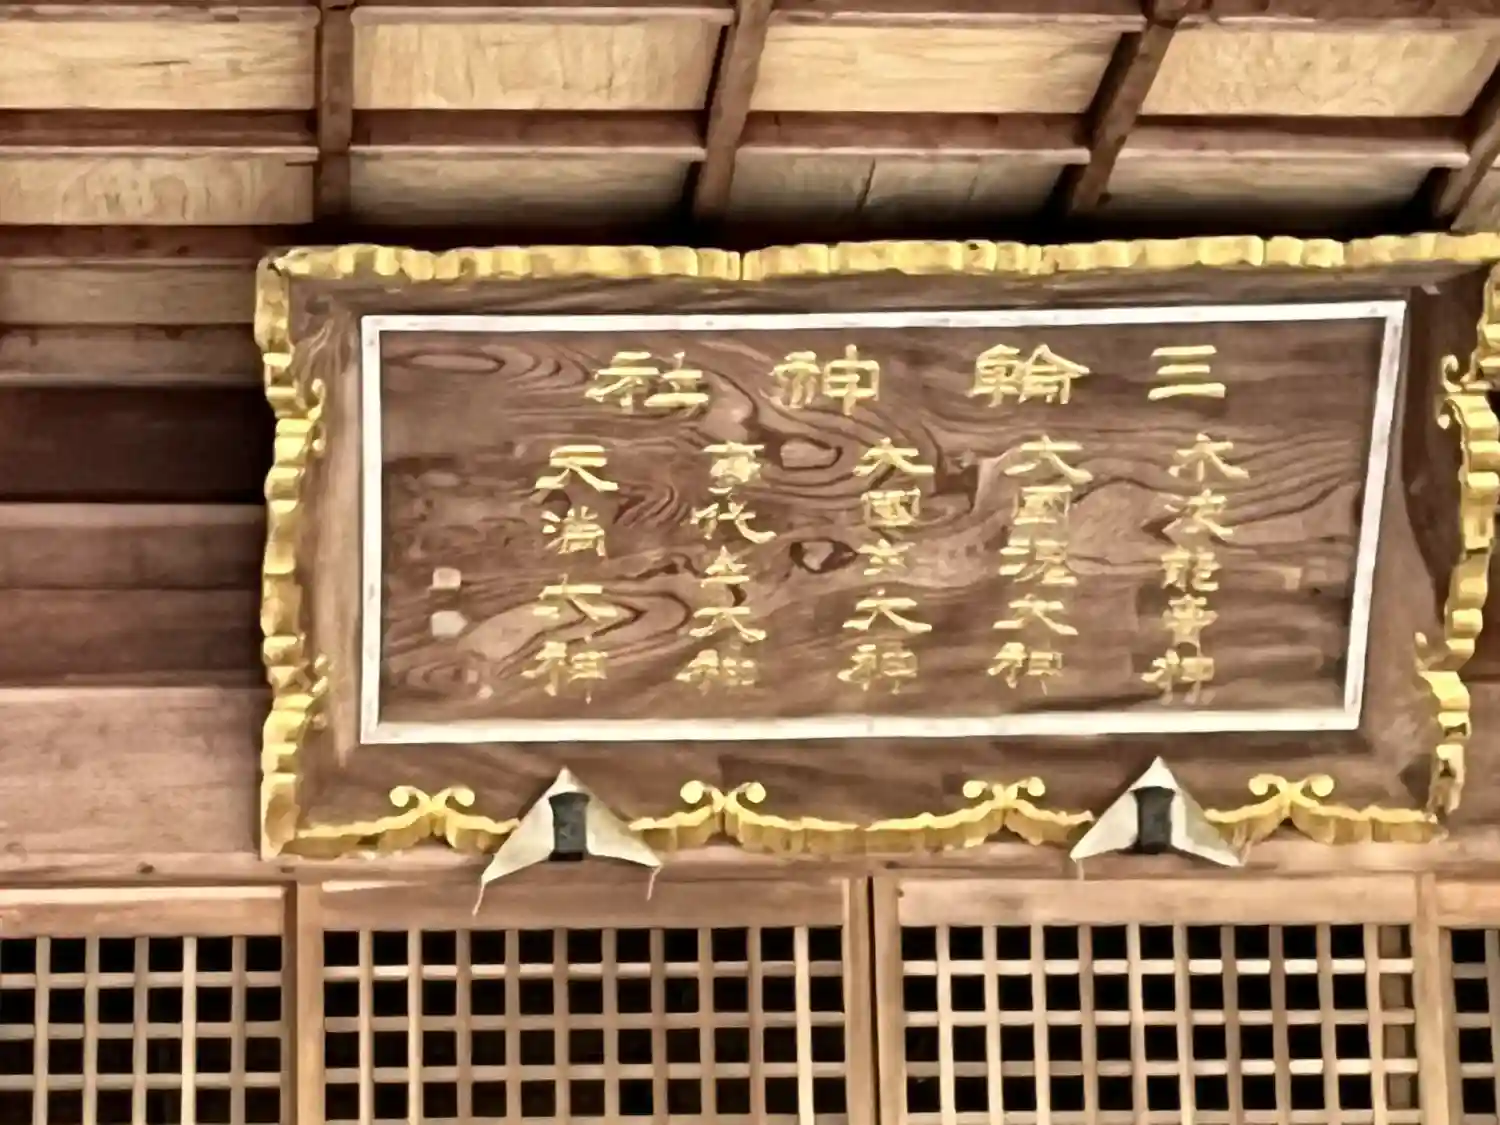 三輪神社
木波能音神
大国魂大神
大國主大神
事代主大神
天満大神